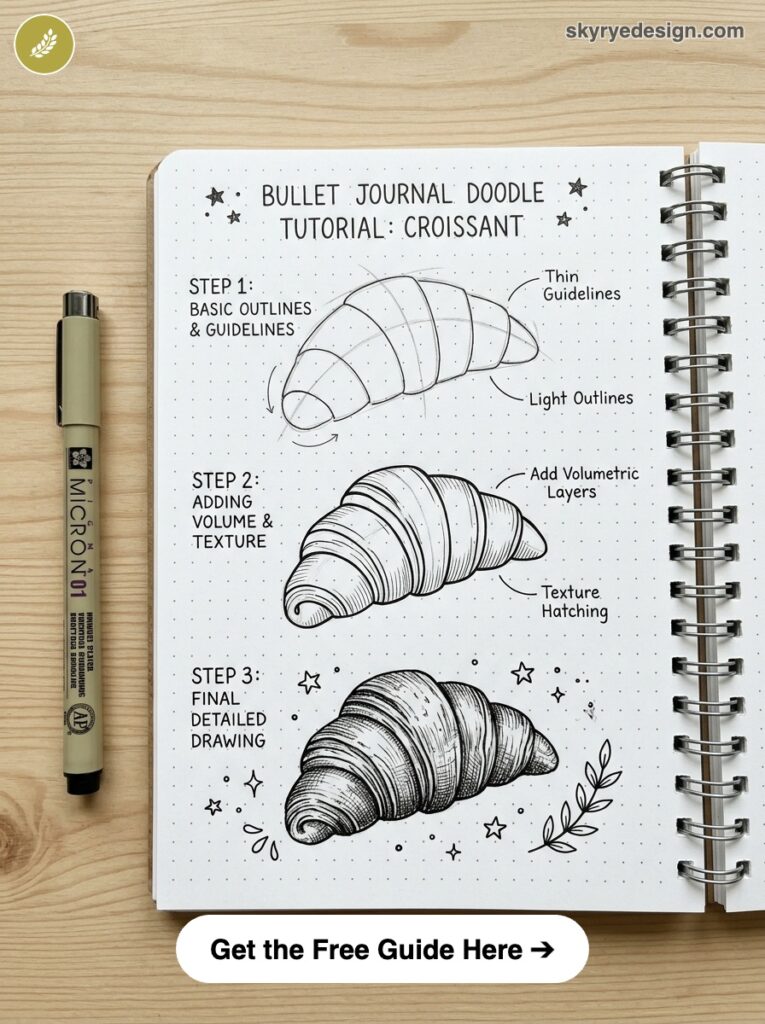 skyryedesign.com
BULLET JOURNAL DOODLE
TUTORIAL: CROISSANT
STEP 1:
BASIC OUTLINES
& GUIDELINES
Thin
Guidelines
Light Outlines
STEP 2:
ADDING
VOLUME &
TEXTURE
Add Volumetric
Layers
Texture
Hatching
STEP 3:
FINAL
DETAILED
DRAWING
PIGMA
MICRON 01
AP
Get the Free Guide Here ➔